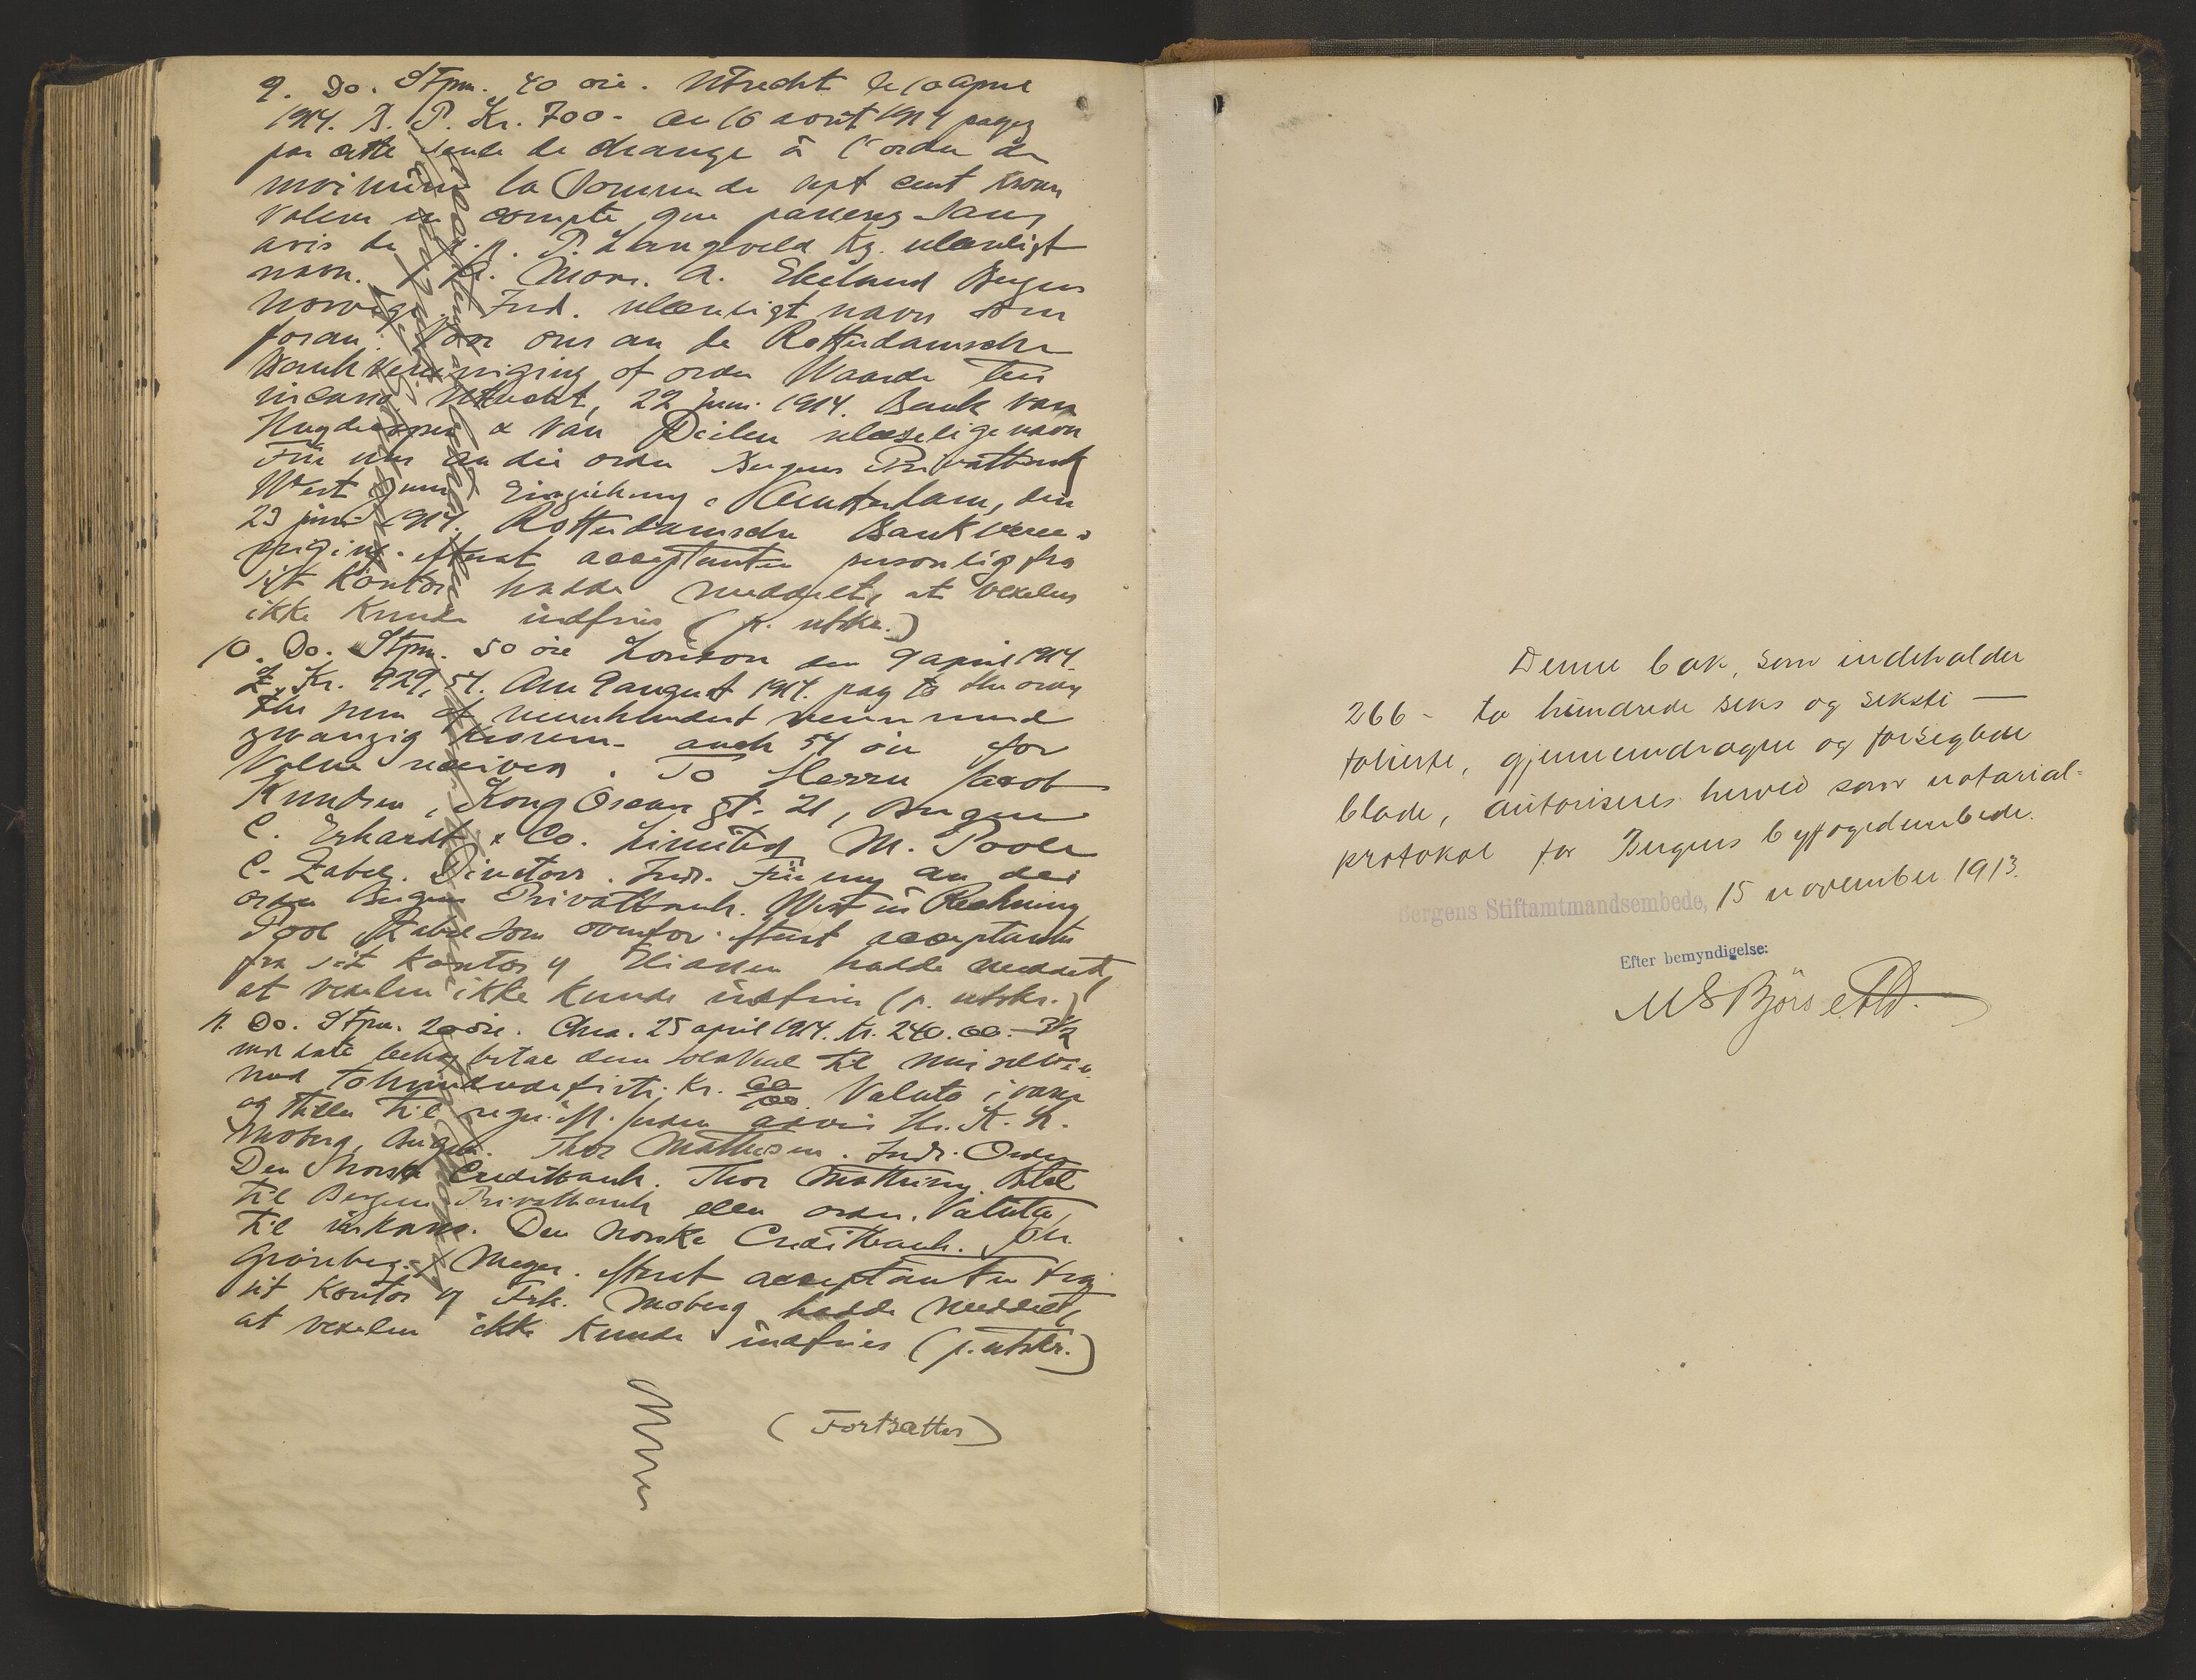 9. Do. Stpm. 40 øre. Utrecht le 10 april
1914. B. P. Kr. 700 - Au 16 août 1914 payez
par cette seule de change à l'ordre de
moi même la Somme de sept cent
Valeur en compte que passerez sans
avis de p.p. P. Langeveld Kz. ulæseligt
navn. Mons. A. Ekeland Bergen
Norwège. Ind. ulæseligt navn som
foran. Voor ons an de Rotterdamsche
Bankvereeniging of order Waarde
incasso Utrecht, 22 juni 1914. Bank van
& van ulæselige navn
Für uns an die order Bergens Privatbank
Wert zum Einziehung. Amsterdam, den
23 juni 1914. Rotterdamsche Bankveree-
niging. efterat acceptanten personlig fra
sit kontor hadde meddelt, at vexelen
ikke kunde indfries (p. utskr.)
10. Do. Stpm. 50 øre London den 9 april 1914.
Kr. 929,54. Am 9 august 1914. pay to the order
the sum of neunhundert neun und
zwanzig Kronen - auch 54 øre for
Value received. To Herrn Jacob
Knudsen, Kong Oscars gt. 21, Bergen
C. Erhardt & Co. Limited M. Poole
C. Zabel. Directors. Indr. Für uns an die
order Bergens Privatbank. Wert in Rechnung
Poole Zabel som ovenfor. efterat acceptanten
fra sit kontor v Eliassen hadde meddelt,
at vexelen ikke kunde indfries (p. utskr.)
11. Do. Stpm. 20 øre. Chra. 25 april 1914. Kr. 240.00. 3½
mdr. dato behag betal denne Solavexel til mig selv
med tohundredefirti Kr. 00/100 Valuta i varer
og stilles til regn. ifl. advis Hr. K. H.
Moberg, Bergen. Thor Mathiesen. Indr. Order
Den Norske Creditbank. Thor Betal
til Bergens Privatbank eller order. Valuta
til inkasso. Den Norske Creditbank. Joh.
Grønberg. / Meyer. efterat acceptanten fra
sit kontor v Frk. Moberg hadde meddelt,
at vexelen ikke kunde indfries (p. utskr.)
(Fortsættes)
Denne bok, som indeholder
266 - to hundrede seks og seksti -
folierte, gjennemdragne og forseglede
blade, autoriseres herved som notarial-
protokol for Bergens byfogedembede.
Bergens Stiftamtmandsembede, 15 november 1913.
Efter bemyndigelse: